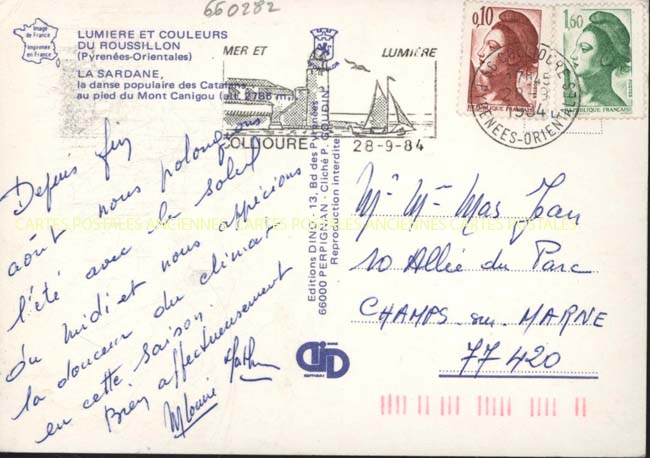 660282
Image
de France
Imprimée
en France
LUMIERE ET COULEURS
DU ROUSSILLON
(Pyrénées-Orientales)
LA SARDANE,
la danse populaire des Catalans
au pied du Mont Canigou (alt. 2785 m.)
MER ET LUMIÈRE
COLLIOURE 28-9-84
0,10
REPUBLIQUE FRANÇAISE
1,60
REPUBLIQUE FRANÇAISE
1984
PYRENEES-ORIENTALES
Depuis fin
août nous prolongeons
l'été avec le soleil
du midi et nous apprécions
la douceur du climat
en cette saison.
Bien affectueusement
M Louise
Editions DINO - 13, Bd des Pyrénées
66000 PERPIGNAN - Cliché P. GAUDIN
Reproduction interdite
DINO
Mr Mme Mas Jean
10 Allée du Parc
CHAMPS sur MARNE
77420
CARTES POSTALES ANCIENNES CARTES POSTALES ANCIENNES CARTES POSTALES